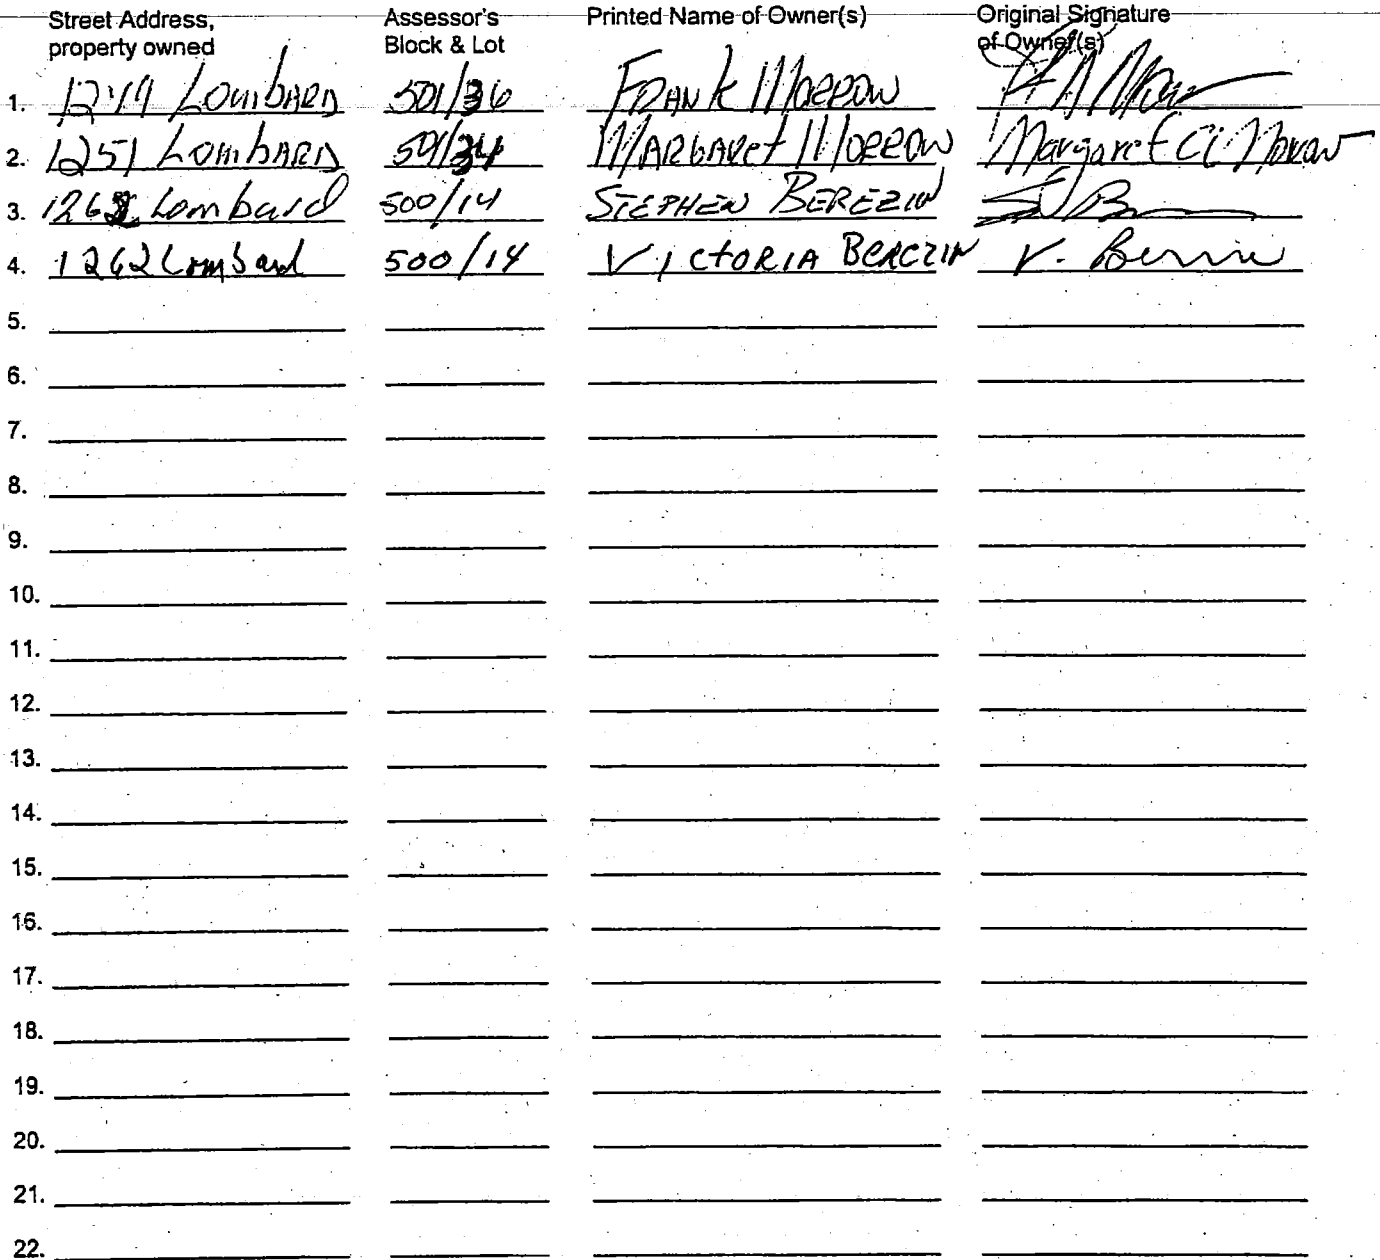 Street Address, Assessor's Printed Name of Owner(s) Original Signature
property owned Block & Lot of Owner(s)
1. 1249 Lombard 501/36 Frank Morrow
2. 1251 Lombard 501/34 Margaret Morrow Margaret C. Morrow
3. 1262 Lombard 500/14 Stephen Berezin
4. 1262 Lombard 500/14 Victoria Berezin V.
5.
6.
7.
8.
9.
10.
11.
12.
13.
14.
15.
16.
17.
18.
19.
20.
21.
22.